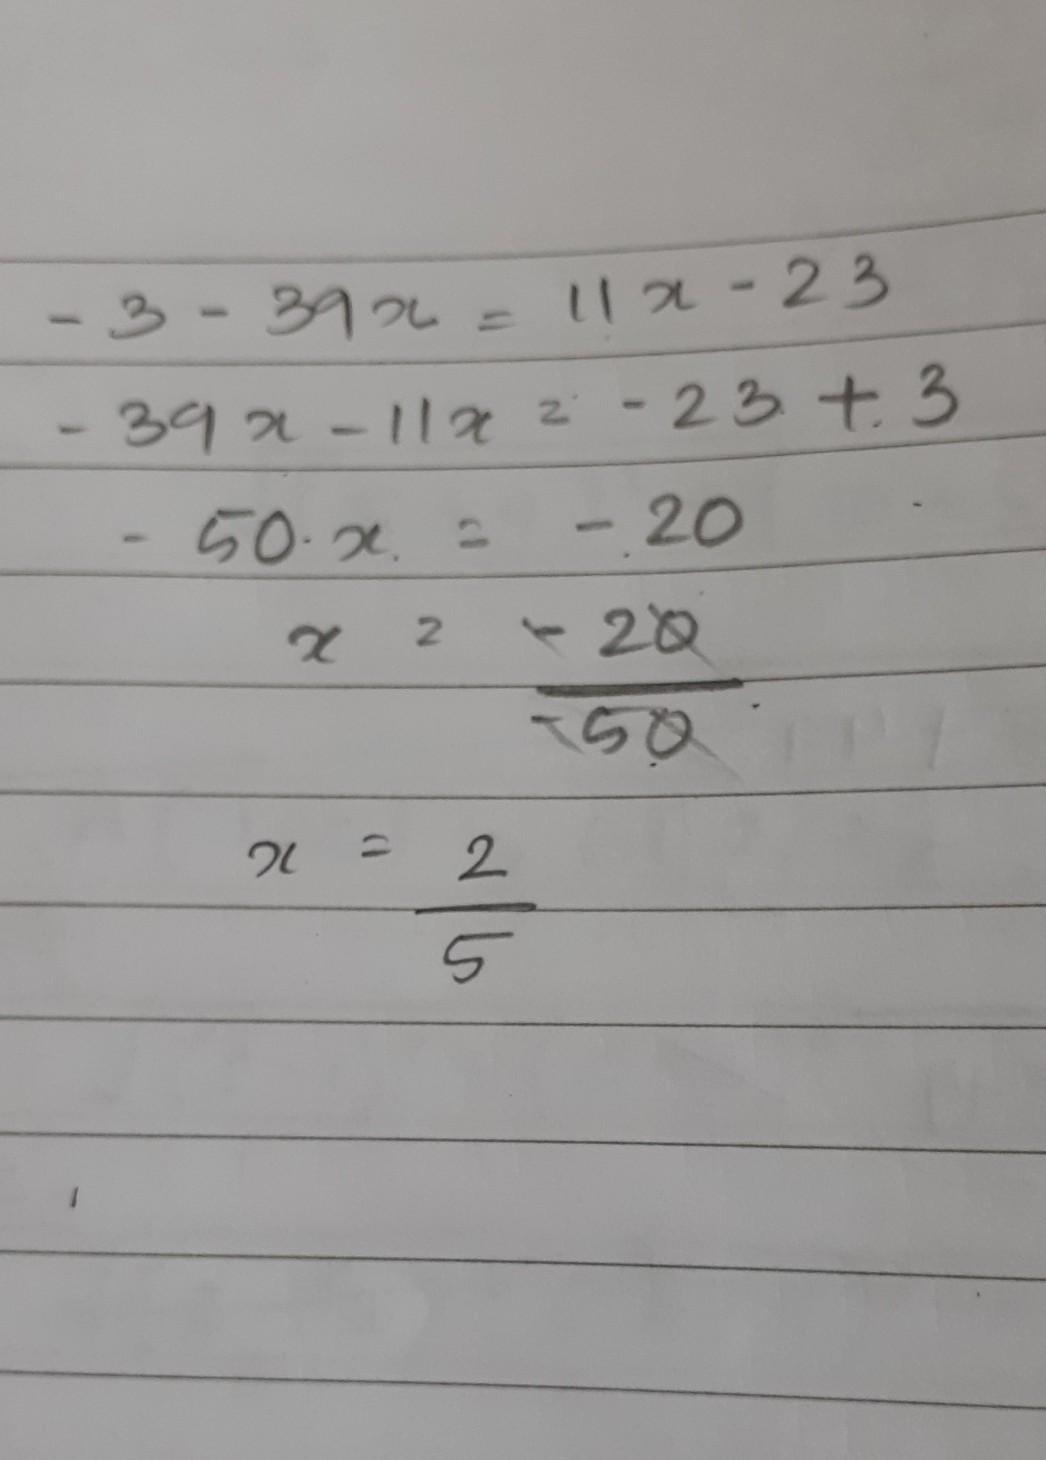 - 3 - 39x = 11x - 23
- 39x - 11x = - 23 + 3
- 50.x = - 20
x = - 20
- 50
x = 2
5